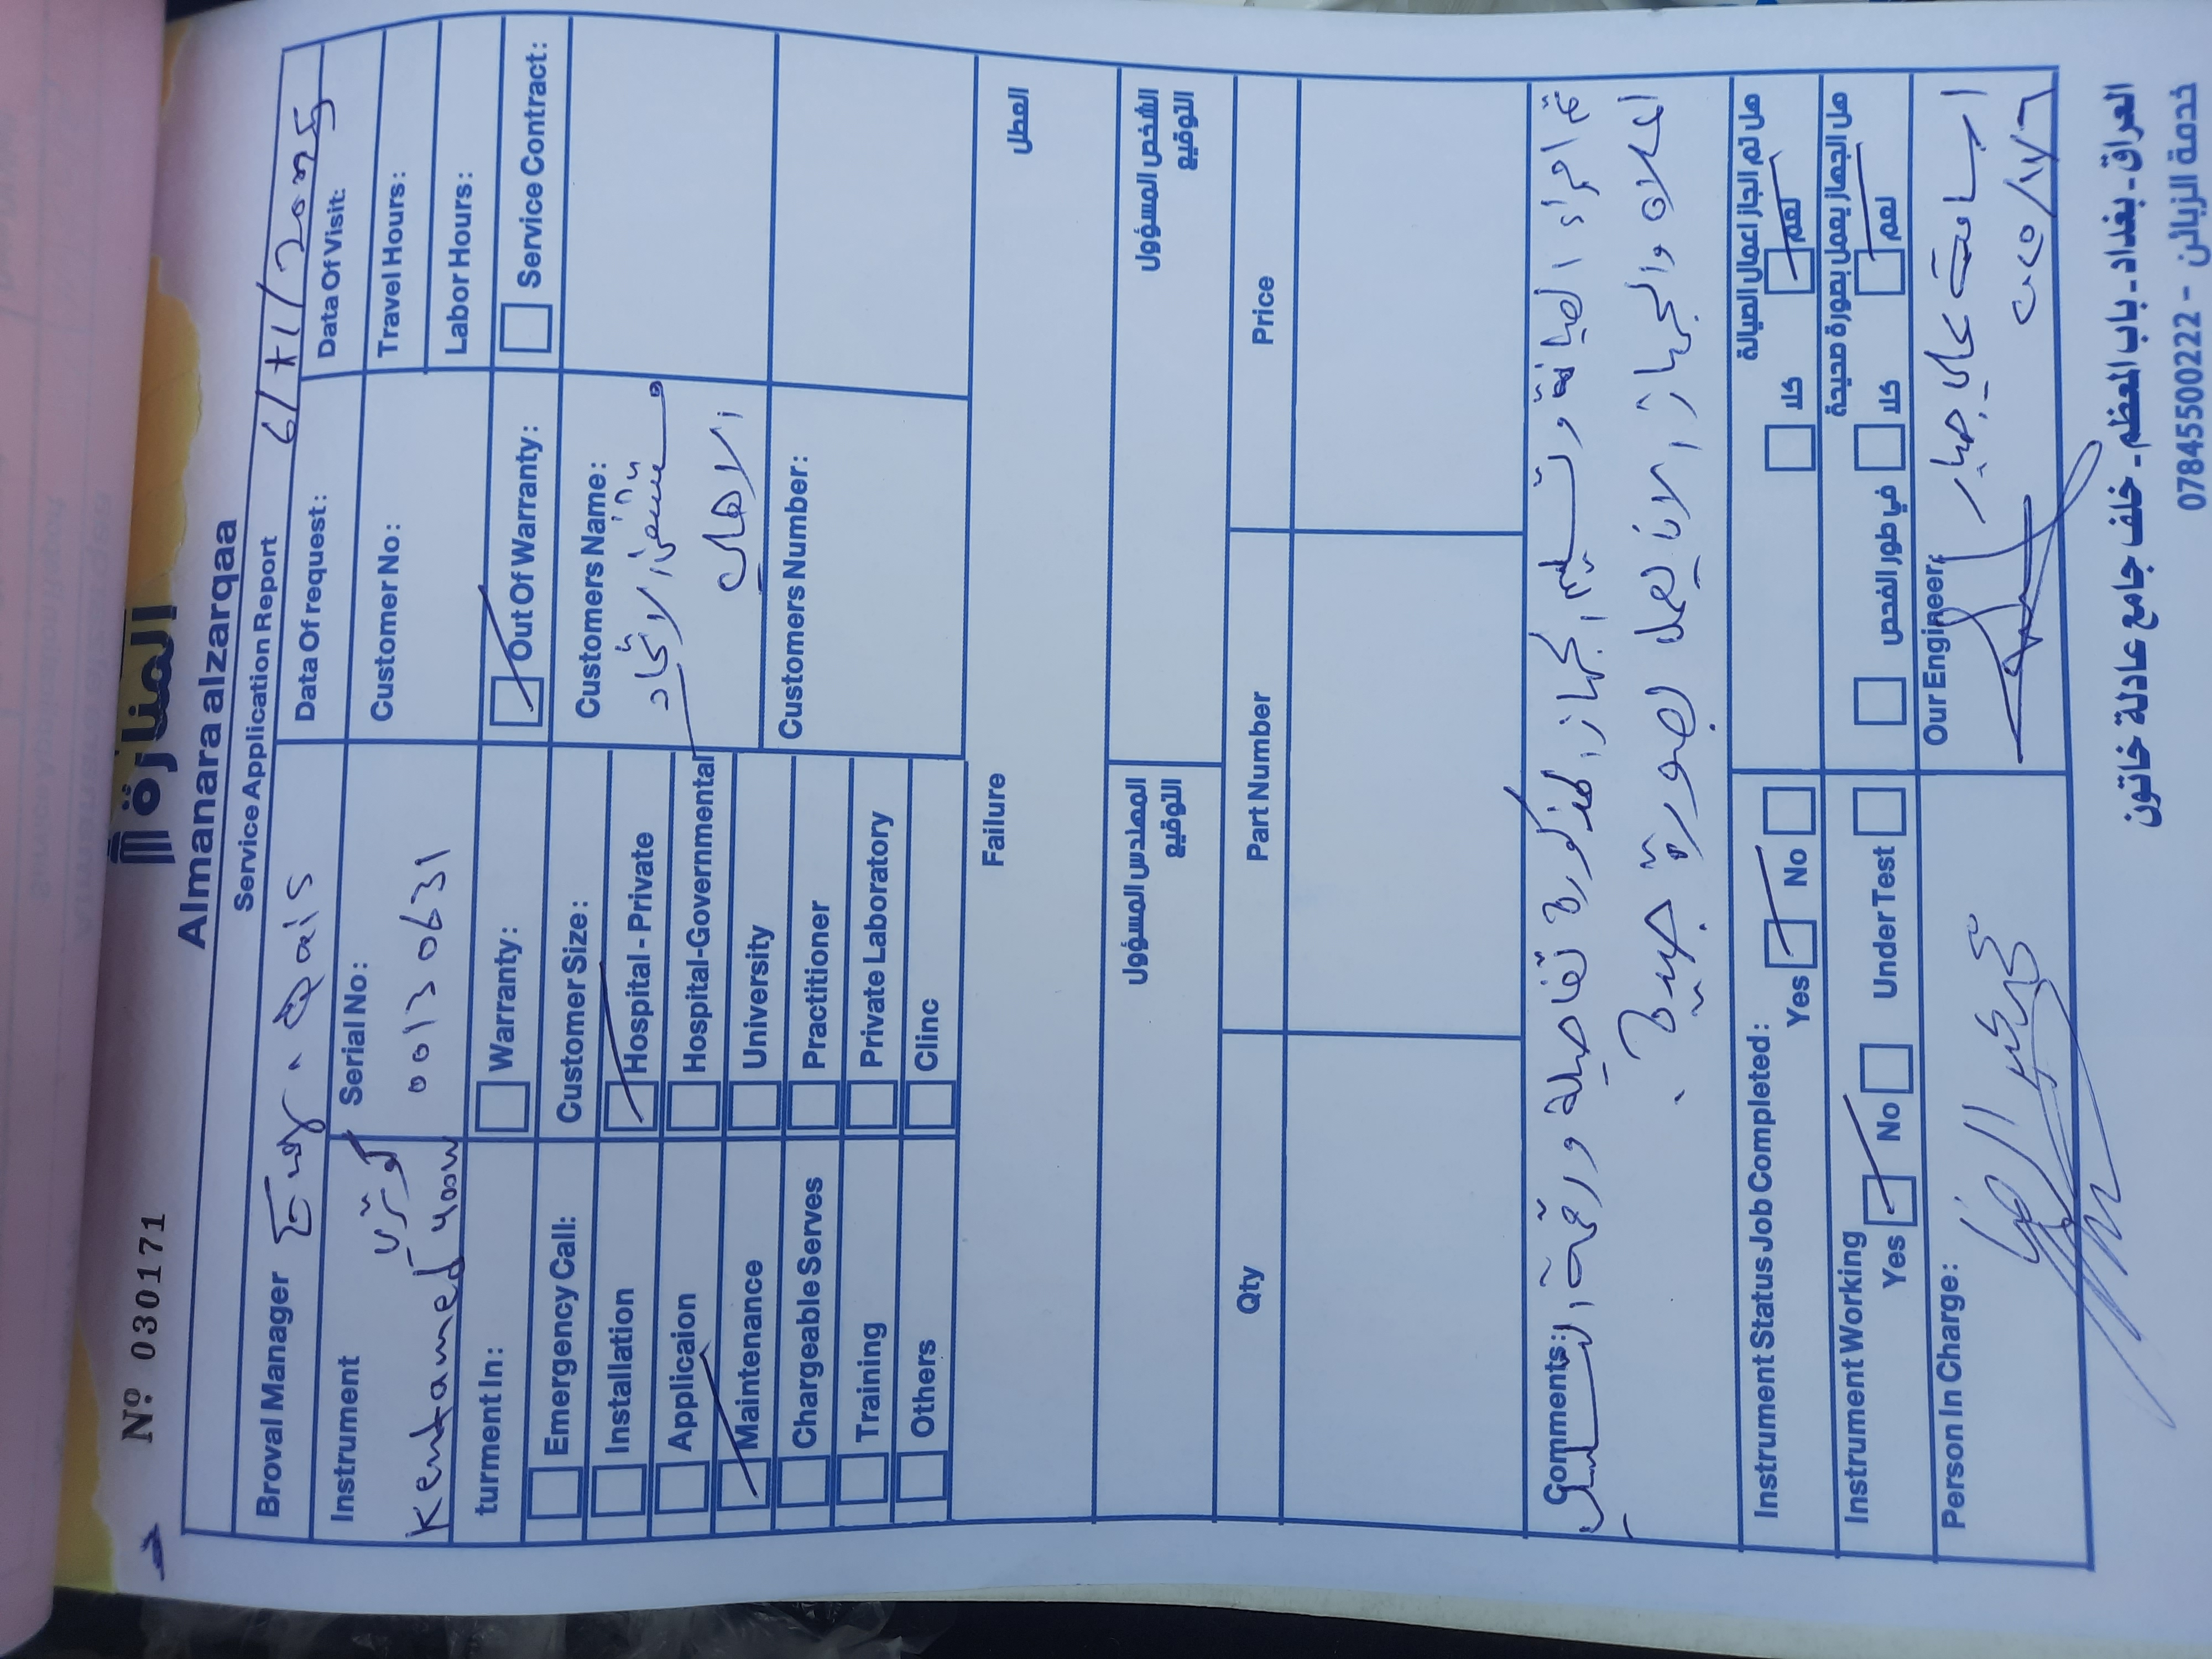 Nº 030171
المنارة
Almanara alzarqaa
Service Application Report
Broval Manager Eng. Qais
Data Of request: 6/1/2025
Data Of Visit:
Instrument
Kentamed 400W
Serial No:
00130631
Customer No:
Travel Hours:
Labor Hours:
turment In:
Warranty:
Out Of Warranty:
Service Contract:
Emergency Call:
Installation
Applicaion
Maintenance
Chargeable Serves
Training
Others
Customer Size:
Hospital - Private
Hospital-Governmental
University
Practitioner
Private Laboratory
Clinc
Customers Name:
مستشفى الاتحاد
الاهلي
Customers Number:
Failure العطل
المهندس المسؤول
التوقيع
الشخص المسؤول
التوقيع
Qty Part Number Price
Comments:
تم اجراء الصيانة وتسليم الجهاز المذكورة تفاصيله ورقمه التسلسلي
اعلاه والجهاز الان يعمل بصورة جيدة.
Instrument Status Job Completed:
Yes No
هل تم انجاز اعمال الصيانة
كلا نعم
Instrument Working
Yes No Under Test
هل الجهاز يعمل بصورة صحيحة
في طور الفحص كلا نعم
Person In Charge:
Our Engineer,
علي جبار
العراق - بغداد -
خدمة الزبائن - 07845500222